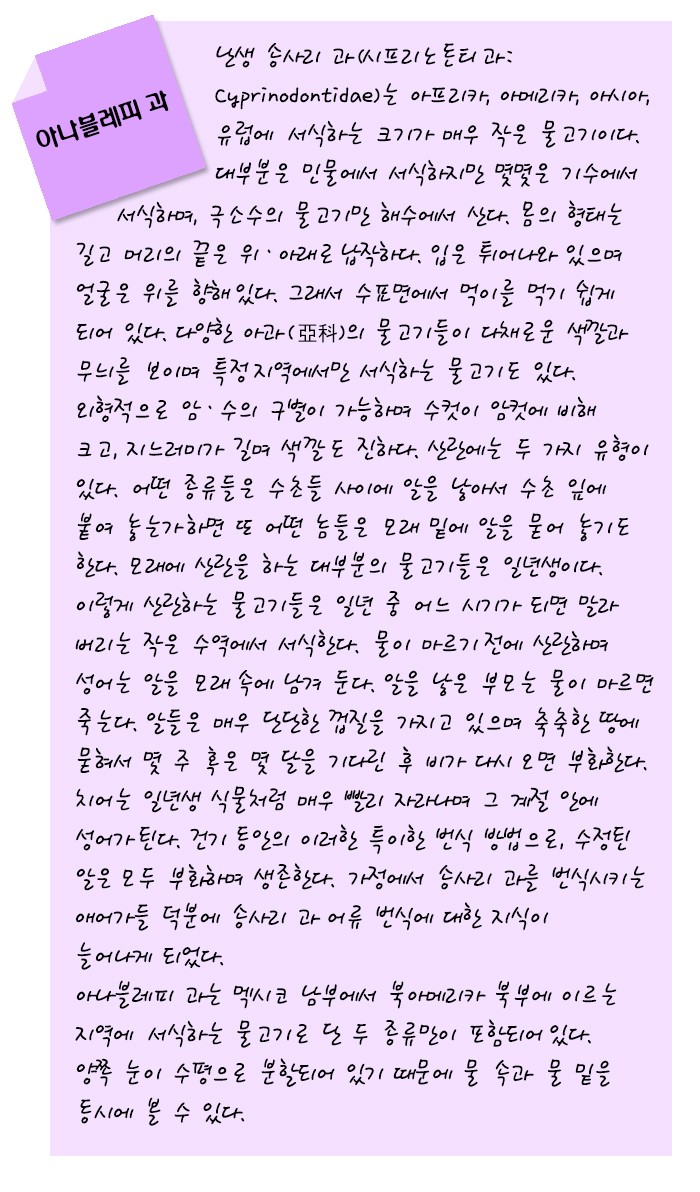 아나블레피 과
난생 송사리 과(시프리노돈티과:
Cyprinodontidae)는 아프리카, 아메리카, 아시아,
유럽에 서식하는 크기가 매우 작은 물고기이다.
대부분은 민물에서 서식하지만 몇몇은 기수에서
서식하며, 극소수의 물고기만 해수에서 산다. 몸의 형태는
길고 머리의 끝은 위·아래로 납작하다. 입은 튀어나와 있으며
얼굴은 위를 향해 있다. 그래서 수표면에서 먹이를 먹기 쉽게
되어 있다. 다양한 아과(亞科)의 물고기들이 다채로운 색깔과
무늬를 보이며 특정 지역에서만 서식하는 물고기도 있다.
외형적으로 암·수의 구별이 가능하며 수컷이 암컷에 비해
크고, 지느러미가 길며 색깔도 진하다. 산란에는 두 가지 유형이
있다. 어떤 종류들은 수초들 사이에 알을 낳아서 수초 잎에
붙여 놓는가하면 또 어떤 놈들은 모래 밑에 알을 묻어 놓기도
한다. 모래에 산란을 하는 대부분의 물고기들은 일년생이다.
이렇게 산란하는 물고기들은 일년 중 어느 시기가 되면 말라
버리는 작은 수역에서 서식한다. 물이 마르기 전에 산란하며
성어는 알을 모래 속에 남겨 둔다. 알을 낳은 부모는 물이 마르면
죽는다. 알들은 매우 단단한 껍질을 가지고 있으며 축축한 땅에
묻혀서 몇 주 혹은 몇 달을 기다린 후 비가 다시 오면 부화한다.
치어는 일년생 식물처럼 매우 빨리 자라나며 그 계절 안에
성어가 된다. 건기 동안의 이러한 특이한 번식 방법으로, 수정된
알은 모두 부화하며 생존한다. 가정에서 송사리 과를 번식시키는
애어가들 덕분에 송사리 과 어류 번식에 대한 지식이
늘어나게 되었다.
아나블레피 과는 멕시코 남부에서 북아메리카 북부에 이르는
지역에 서식하는 물고기로 단 두 종류만이 포함되어 있다.
양쪽 눈이 수평으로 분할되어 있기 때문에 물 속과 물 밑을
동시에 볼 수 있다.